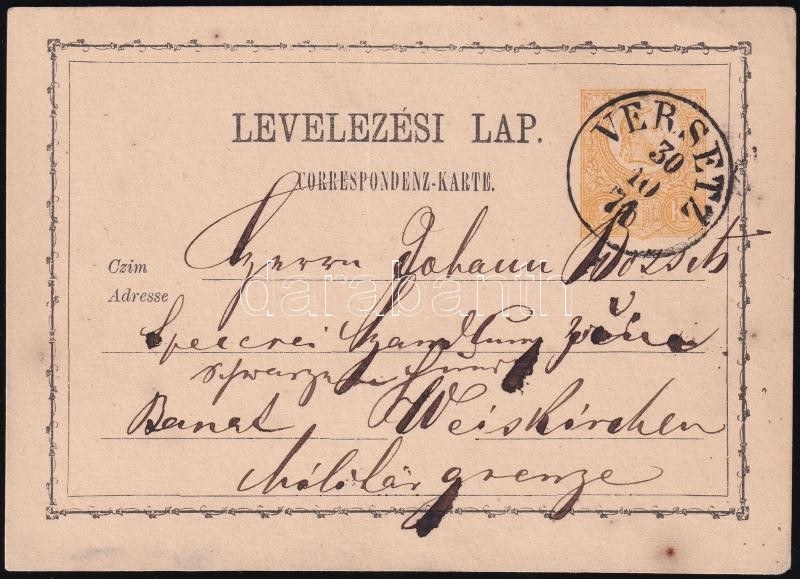 LEVELEZÉSI LAP.
CORRESPONDENZ-KARTE.
VERSETZ
30
10
Czim
Adresse
Herrn Johann
Specerei Handlung zum
schwarzen Hund
Banat Weiskirchen
Militär grenze
darabanth